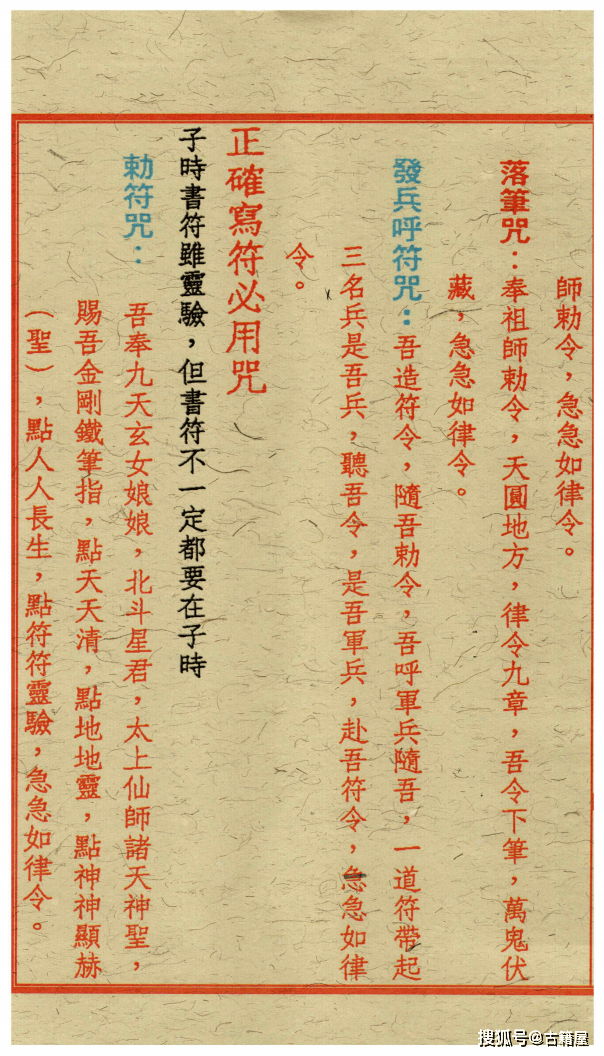 師勅令，急急如律令。
落筆咒：奉祖師勅令，天圓地方，律令九章，吾令下筆，萬鬼伏
藏，急急如律令。
發兵呼符咒：吾造符令，隨吾勅令，吾呼軍兵隨吾，一道符帶起
三名兵是吾兵，聽吾令，是吾軍兵，赴吾符令，急急如律
令。
正確寫符必用咒
子時書符雖靈驗，但書符不一定都要在子時
勅符咒：吾奉九天玄女娘娘，北斗星君，太上仙師諸天神聖，
賜吾金剛鐵筆指，點天天清，點地地靈，點神神顯赫
（聖），點人人長生，點符符靈驗，急急如律令。
搜狐号@古籍屋